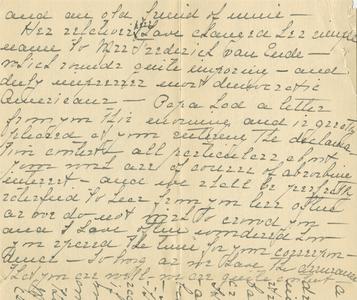 and an old friend of mine –
Her relatives have changed her
name to Mrs Frederick van
which sounds quite imposing – and
duly impresses most democratic
Americans – Papa had a letter
from you this morning, and is greatly
pleased at your
all particulars about
your work are of course of absorbing
interest – and we shall be perfectly
to hear from you less often
as we do not want to crowd you
and I have often wondered how
you spared the time for your correspon-
dence – So long as we have the assurance
that you are well, we are